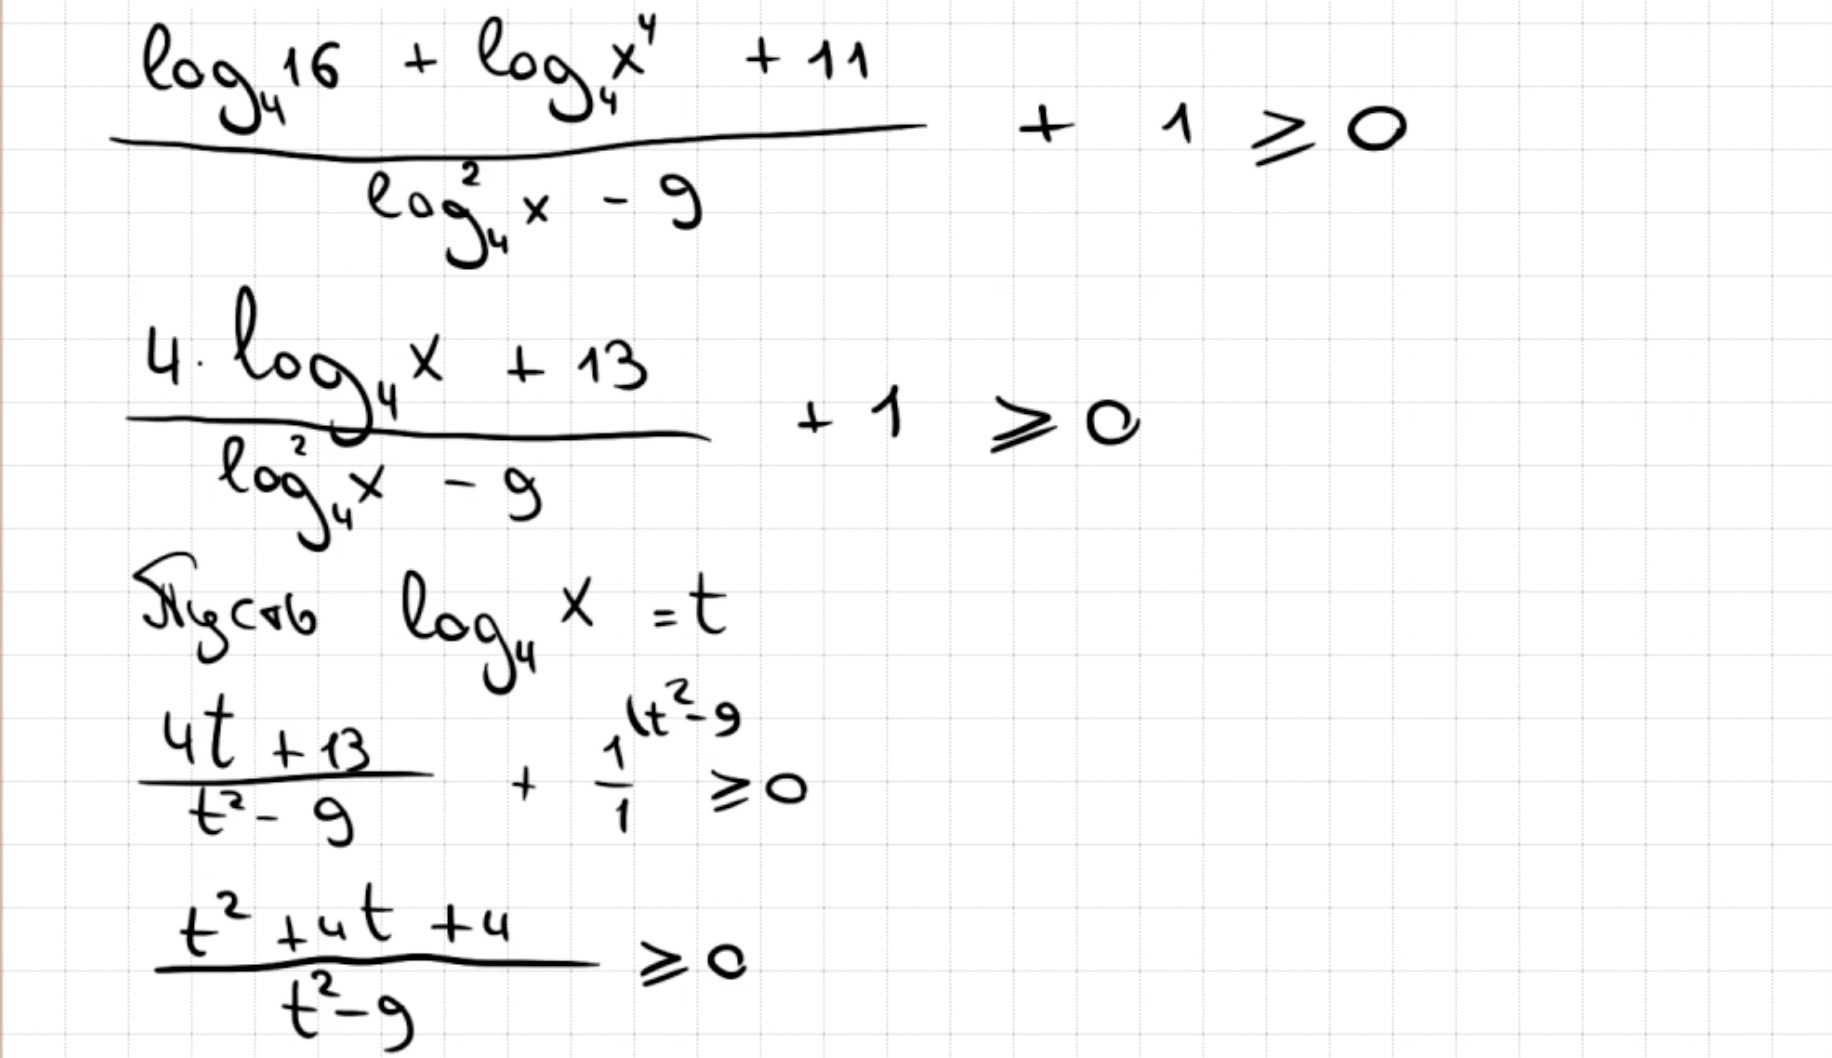 (log₄16 + log₄x⁴ + 11)/(log₄²x - 9) + 1 ⩾ 0
(4·log₄x + 13)/(log₄²x - 9) + 1 ⩾ 0
Пусть log₄x = t
(4t + 13)/(t² - 9) + 1/1 (t² - 9 ⩾ 0
(t² + 4t + 4)/(t² - 9) ⩾ 0